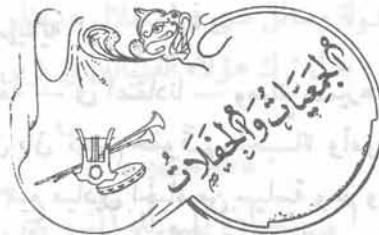 الجمعيَات وَالحفلَات